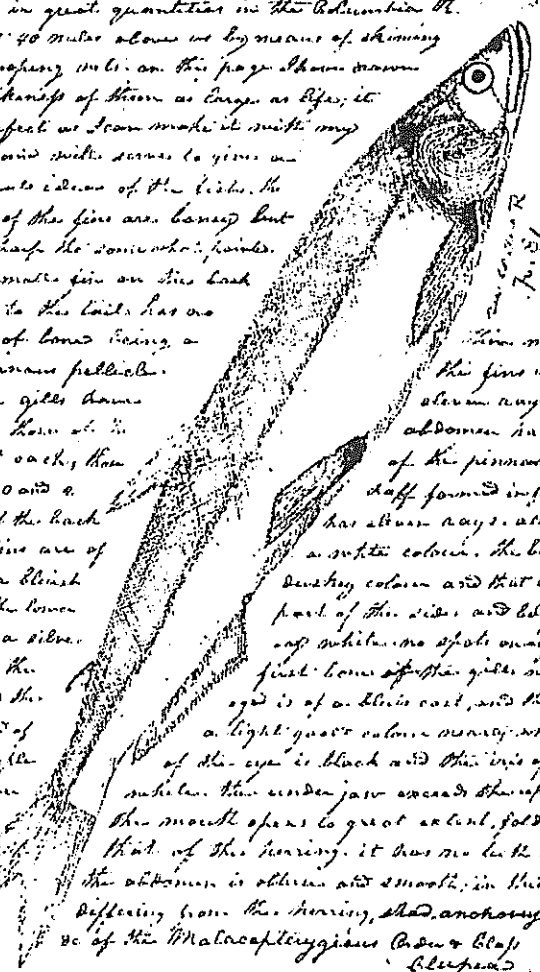 in great quantities in the Columbia R.
40 miles above us by means of skiming
oping nets. on this page I have drawn
likeness of them as large as life; it
rfect as I can make it with my
and will serve to give a
idea of the fish. the
of the fins are boney but
sharp tho' somewhat pointed.
small fin on the back
to the tail has no
of bone being a
nous pellicle. the fins
gills have eleven ray
those of th abdomen ha
each, those of the pinna
0 and 2 half formed in f
of the back has eleven rays. al
ins are of a white colour. the b
bluish duskey colour and that o
the lower part of the sides and be
a silve ry white. no spots on an
the first bone of the gills n
the eye is of a bluis cast, and th
d of a light goald colour nearly wh
of the eye is black and the iris of
white. the under jaw exceeds the up
the mouth opens to great extent, fold
that of the herring. it has no teeth
the abdomen is obtuse and smooth; in this
differing from the herring, shad, anchovey
&c of the Malacopterygious Order & Class
Clupea